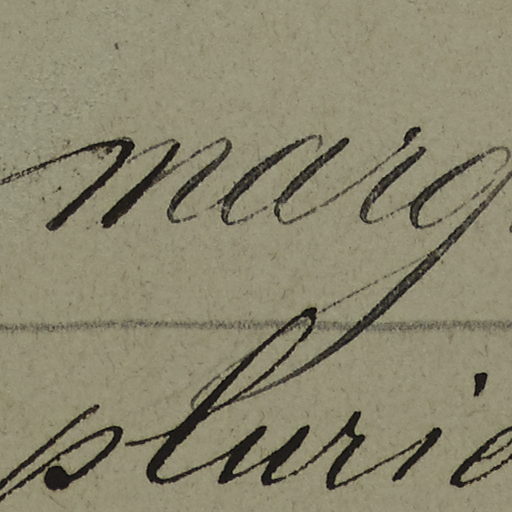 marg
plurie